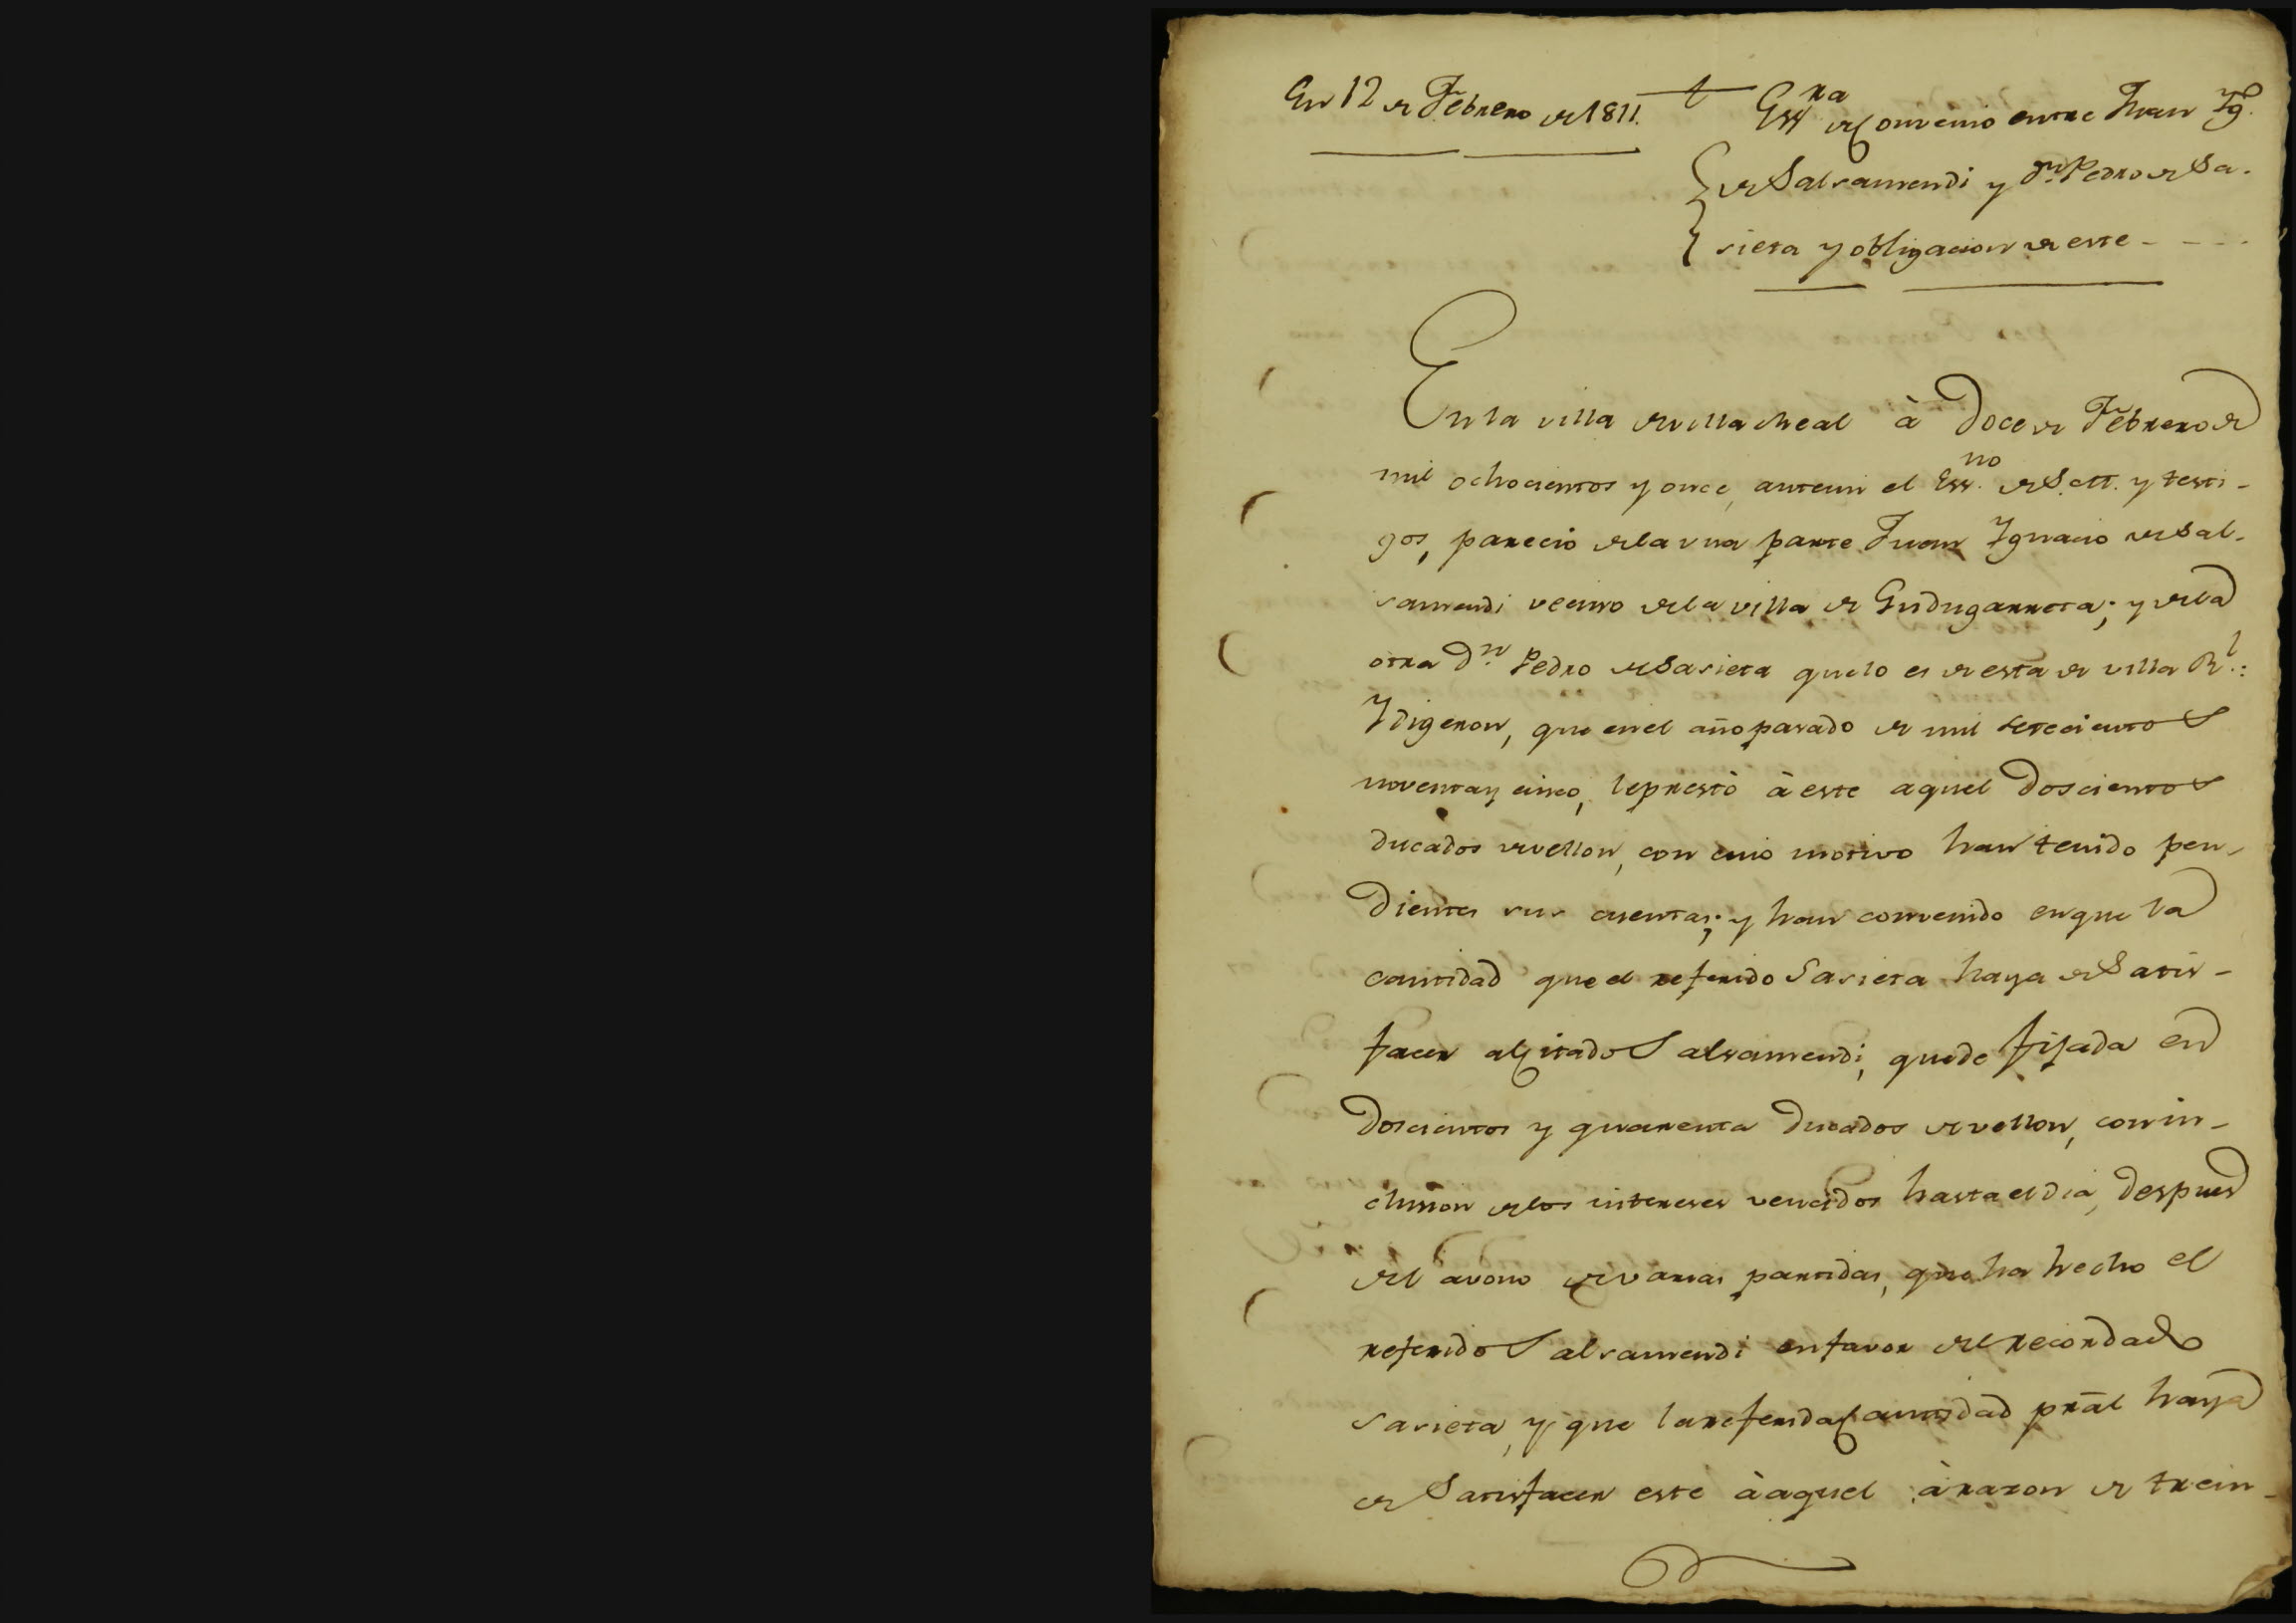 En 12 de Febrero de 1811. t Essra de Convenio entre Juan Ygo
de Salsamendi y Dn. Pedro de Sa-
sieta y obligacion de este - - -
En la villa de villa Rreal à Doce de Febrero de
mil ochocientos y once, ante mi el Essno. de S.M. y testi-
gos, parecio de la una parte Juan Ygnacio de Sal-
samendi vecino de la villa de Gudugarreta; y de la
otra Dn. Pedro de Sasieta que lo es de esta de villa Rl.:
Y digeron, que en el año pasado de mil setecientos
noventa y cinco, le prestò à este aquel Doscientos
ducados de vellon, con cuio motivo han tenido pen-
dientes sus cuentas; y han convenido en que la
cantidad que el referido Sasieta haya de Satis-
facer al Citado Salsamendi, quede fijada en
Doscientos y quarenta Ducados de vellon, con in-
clusion de los intereses vencidos hasta el dia, despues
del avono de varias partidas, que ha hecho el
referido Salsamendi en favor del recordado
Sasieta, y que la referida Cantidad pral haya
de Satisfacer este à aquel à razon de trein-